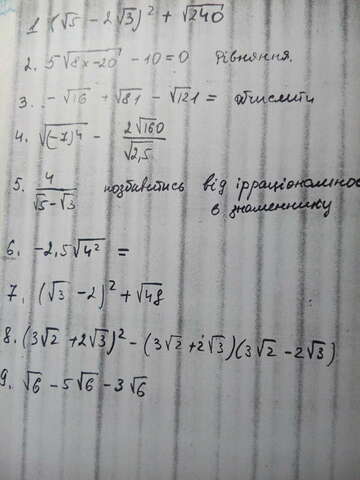 1 (√5 - 2√3)² + √240
2. 5√8x-20 - 10 = 0 Рівняння.
3. -√16 + √81 - √121 = обчислити
4. √(-7)⁴ - 2√160/√2,5
5. 4/√5-√3 позбавитись від ірраціональнос
в знаменнику
6. -2,5√4² =
7. (√3 - 2)² + √48
8. (3√2 + 2√3)² - (3√2 + 2√3)(3√2 - 2√3)
9. √6 - 5√6 - 3√6